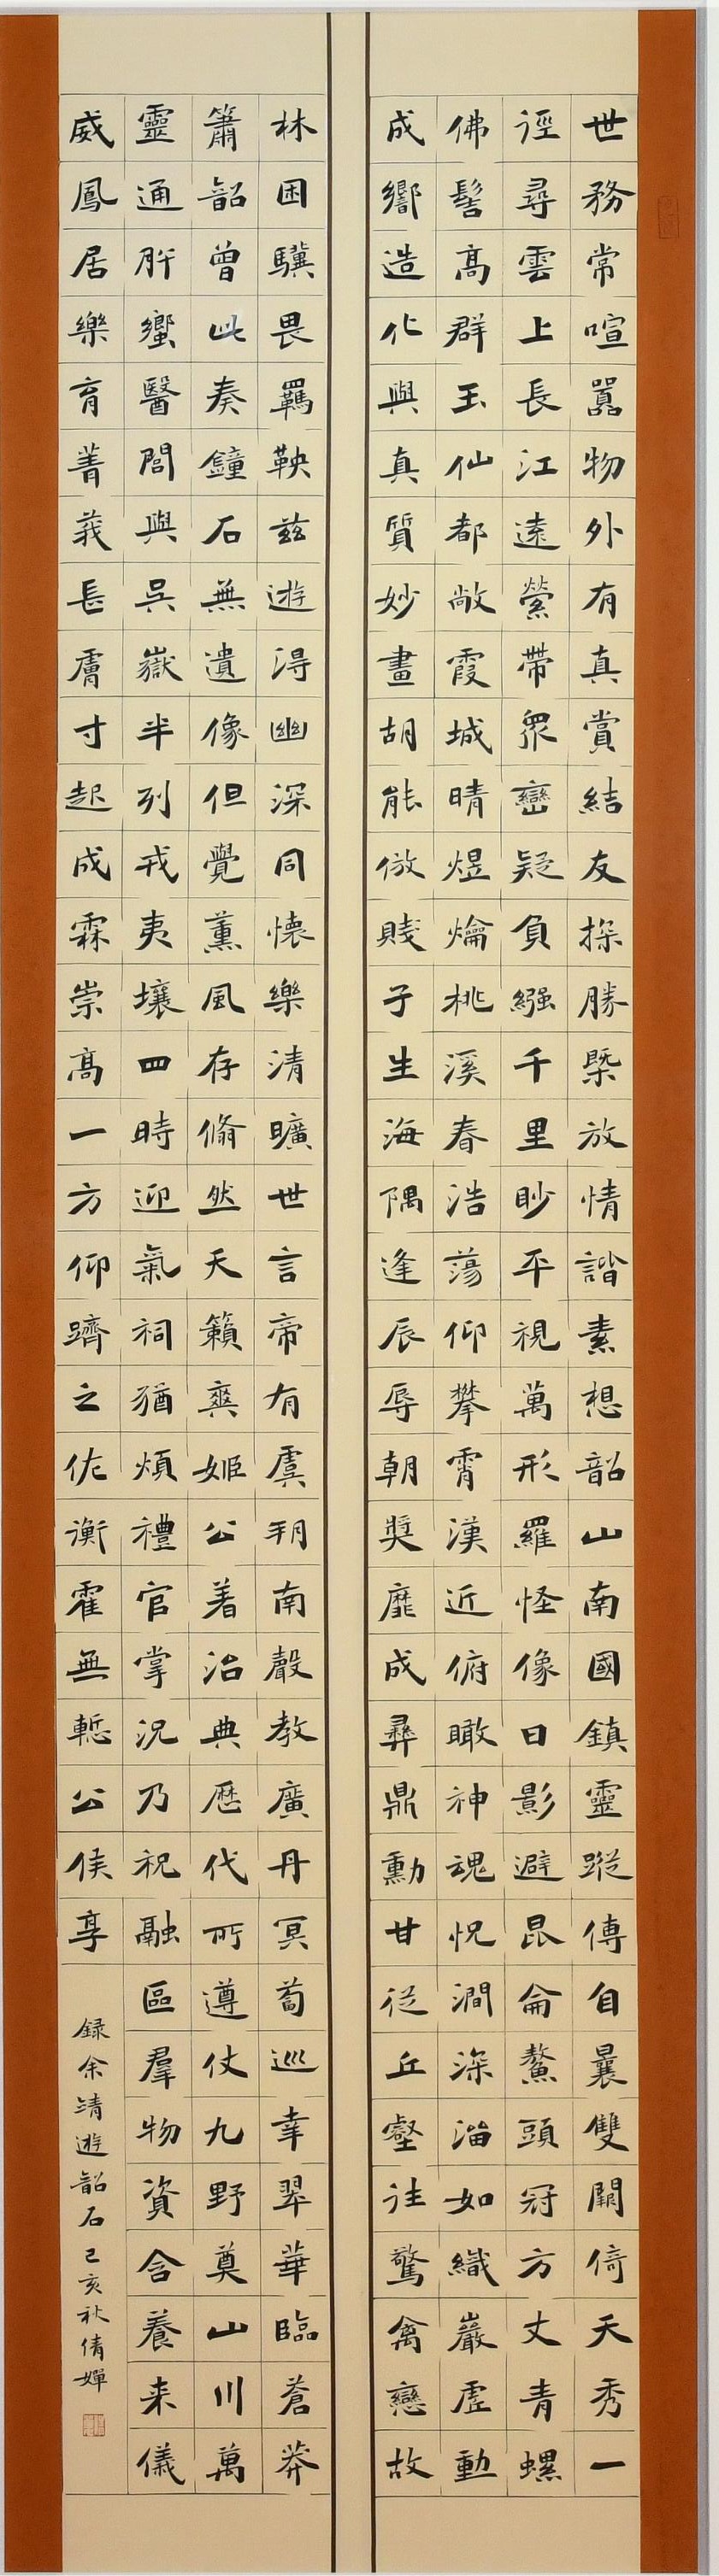 世務常喧囂物外有真賞結友探勝槩放情諧素想韶山南國鎮靈蹤傳自曩雙闕倚天秀一
逕尋雲上長江遠縈帶眾巒疑負繈千里眇平視萬形羅怪像日影避昆侖鰲頭冠方丈青螺
佛髻高群玉仙都敞霞城晴煜爚桃溪春浩蕩仰攀霄漢近俯瞰神魂怳澗深湍如織巖虛動
成響造化與真質妙畫胡能倣賤子生海隅逢辰辱朝奬靡成彞鼎勳甘從丘壑往驚禽戀故
林困驥畏羈鞅茲遊得幽深同懷樂清曠世言帝有虞朔南聲教廣丹冥蔔巡幸翠華臨蒼莽
簫韶曾此奏鐘石無遺像但覺薰風存翛然天籟爽姬公著治典歷代所遵仗九野奠山川萬
靈通肸蠁醫閭與吳嶽半列戎夷壤四時迎氣祠猶煩禮官掌況乃祝融區羣物資含養来儀
威鳳居樂育菁莪長膚寸起成霖崇高一方仰躋之佐衡霍無慙公侯享
録余靖遊韶石己亥秋倩嬋